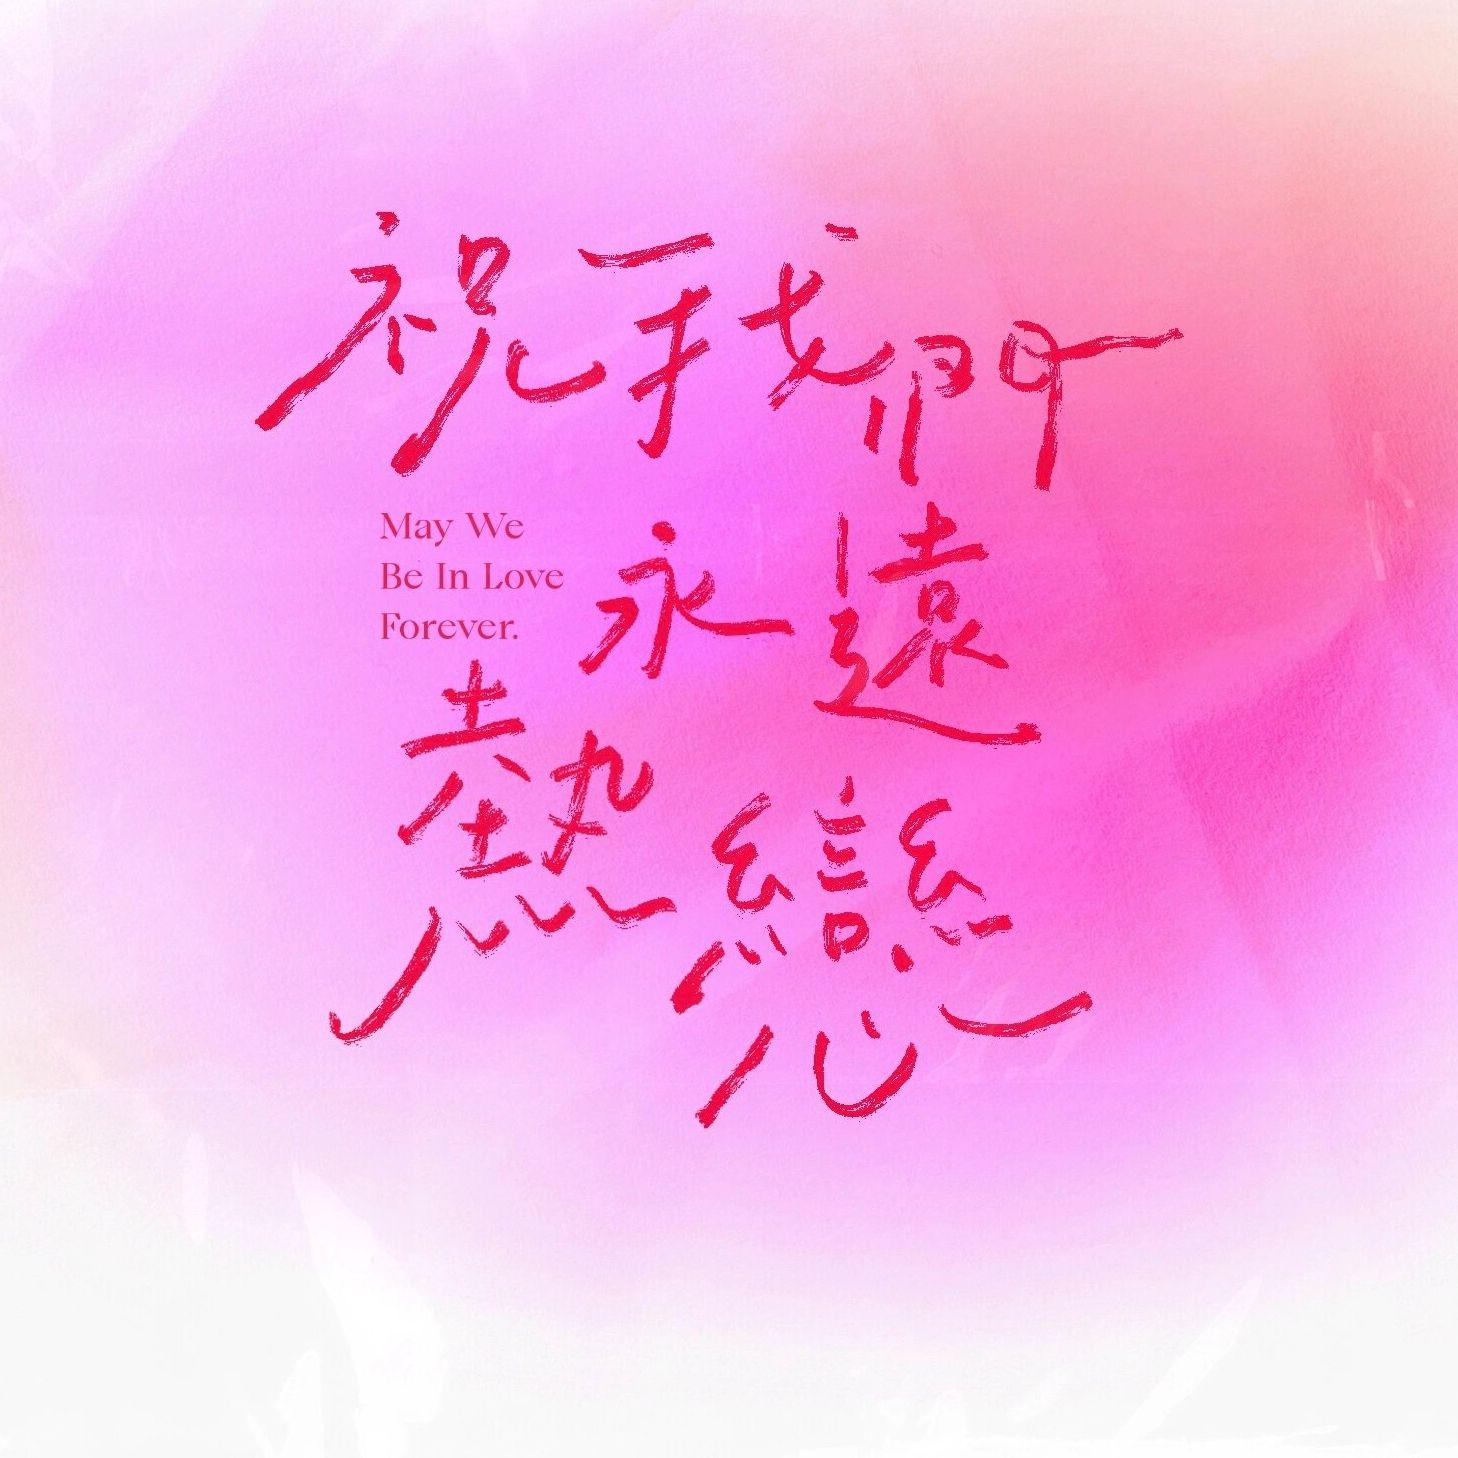 祝我們
May We
Be In Love
Forever.
永遠
熱戀